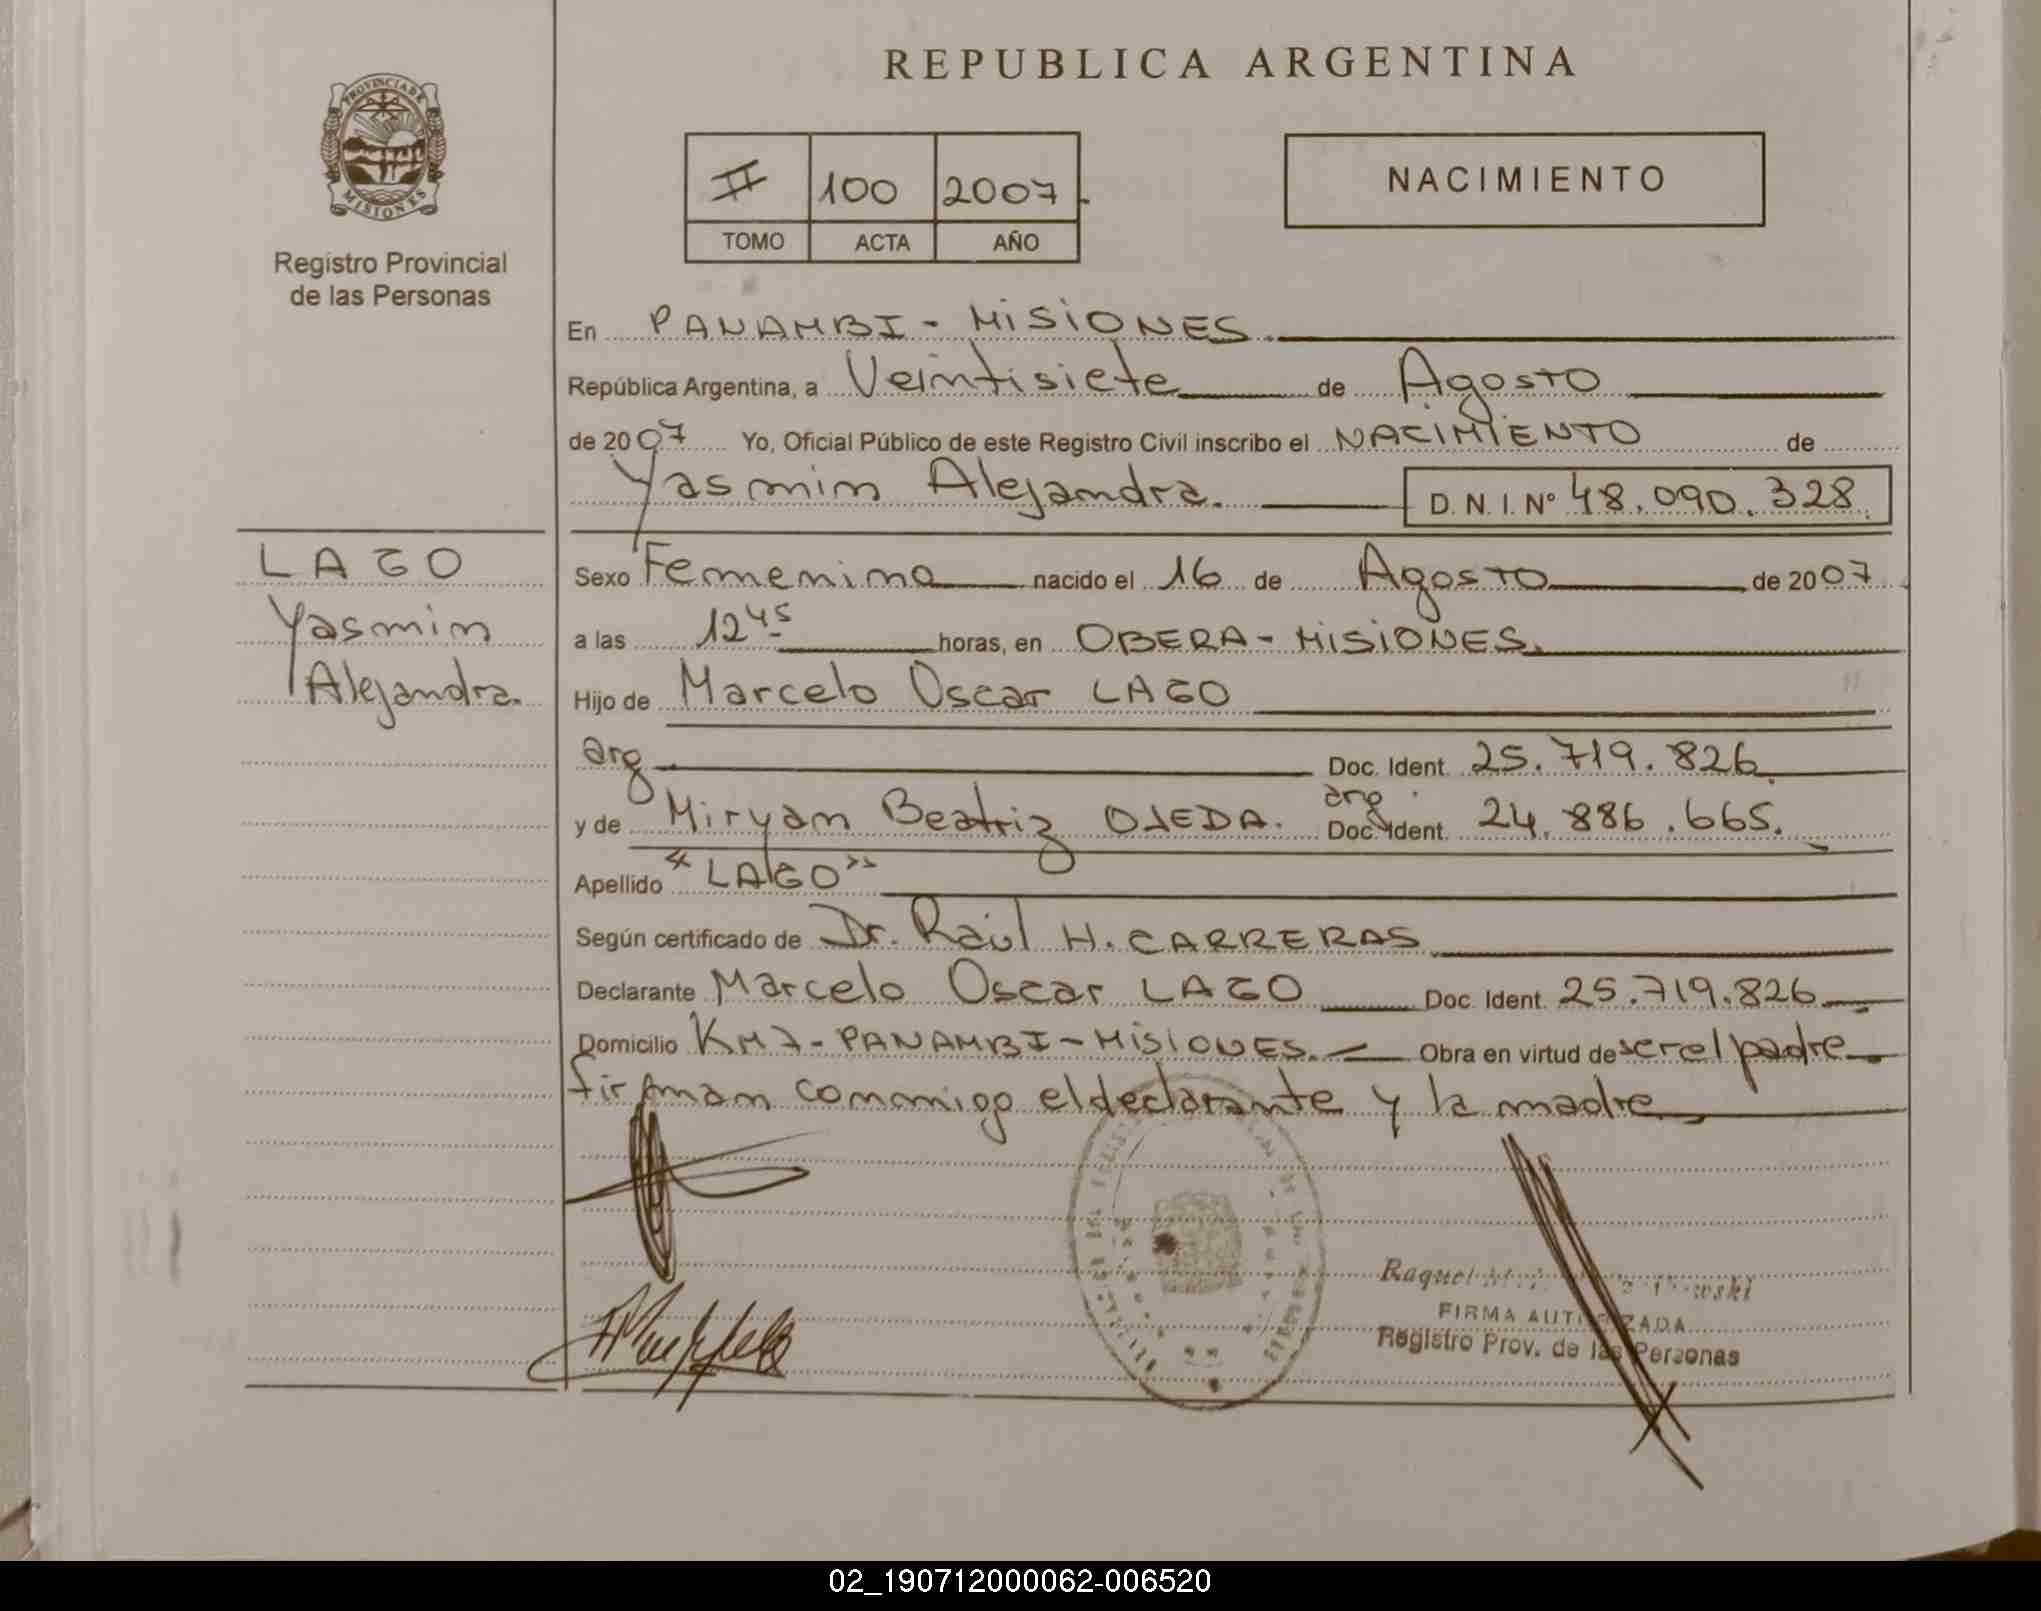 REPUBLICA ARGENTINA
PROVINCIA DE
MISIONES
Registro Provincial
de las Personas
II 100 2007
TOMO ACTA AÑO
NACIMIENTO
En PANAMBI - MISIONES
República Argentina, a Veintisiete de Agosto
de 2007 Yo, Oficial Público de este Registro Civil inscribo el NACIMIENTO de
Yasmin Alejandra. D. N. I. Nº 48.090.328
LAGO
Yasmin
Alejandra.
Sexo Femenino nacido el 16 de Agosto de 2007
a las 12 45 horas, en OBERA - MISIONES.
Hijo de Marcelo Oscar LAGO
arg Doc. Ident. 25.719.826
y de Miryam Beatriz OJEDA. arg. Doc. Ident. 24.886.665.
Apellido "LAGO"
Según certificado de Dr. Raúl H. CARRERAS
Declarante Marcelo Oscar LAGO Doc. Ident. 25.719.826
Domicilio KM 7 - PANAMBI - MISIONES. Obra en virtud de ser el padre
firman conmigo el declarante y la madre
Raquel
FIRMA AUTORIZADA
Registro Prov. de las Personas
02_190712000062-006520